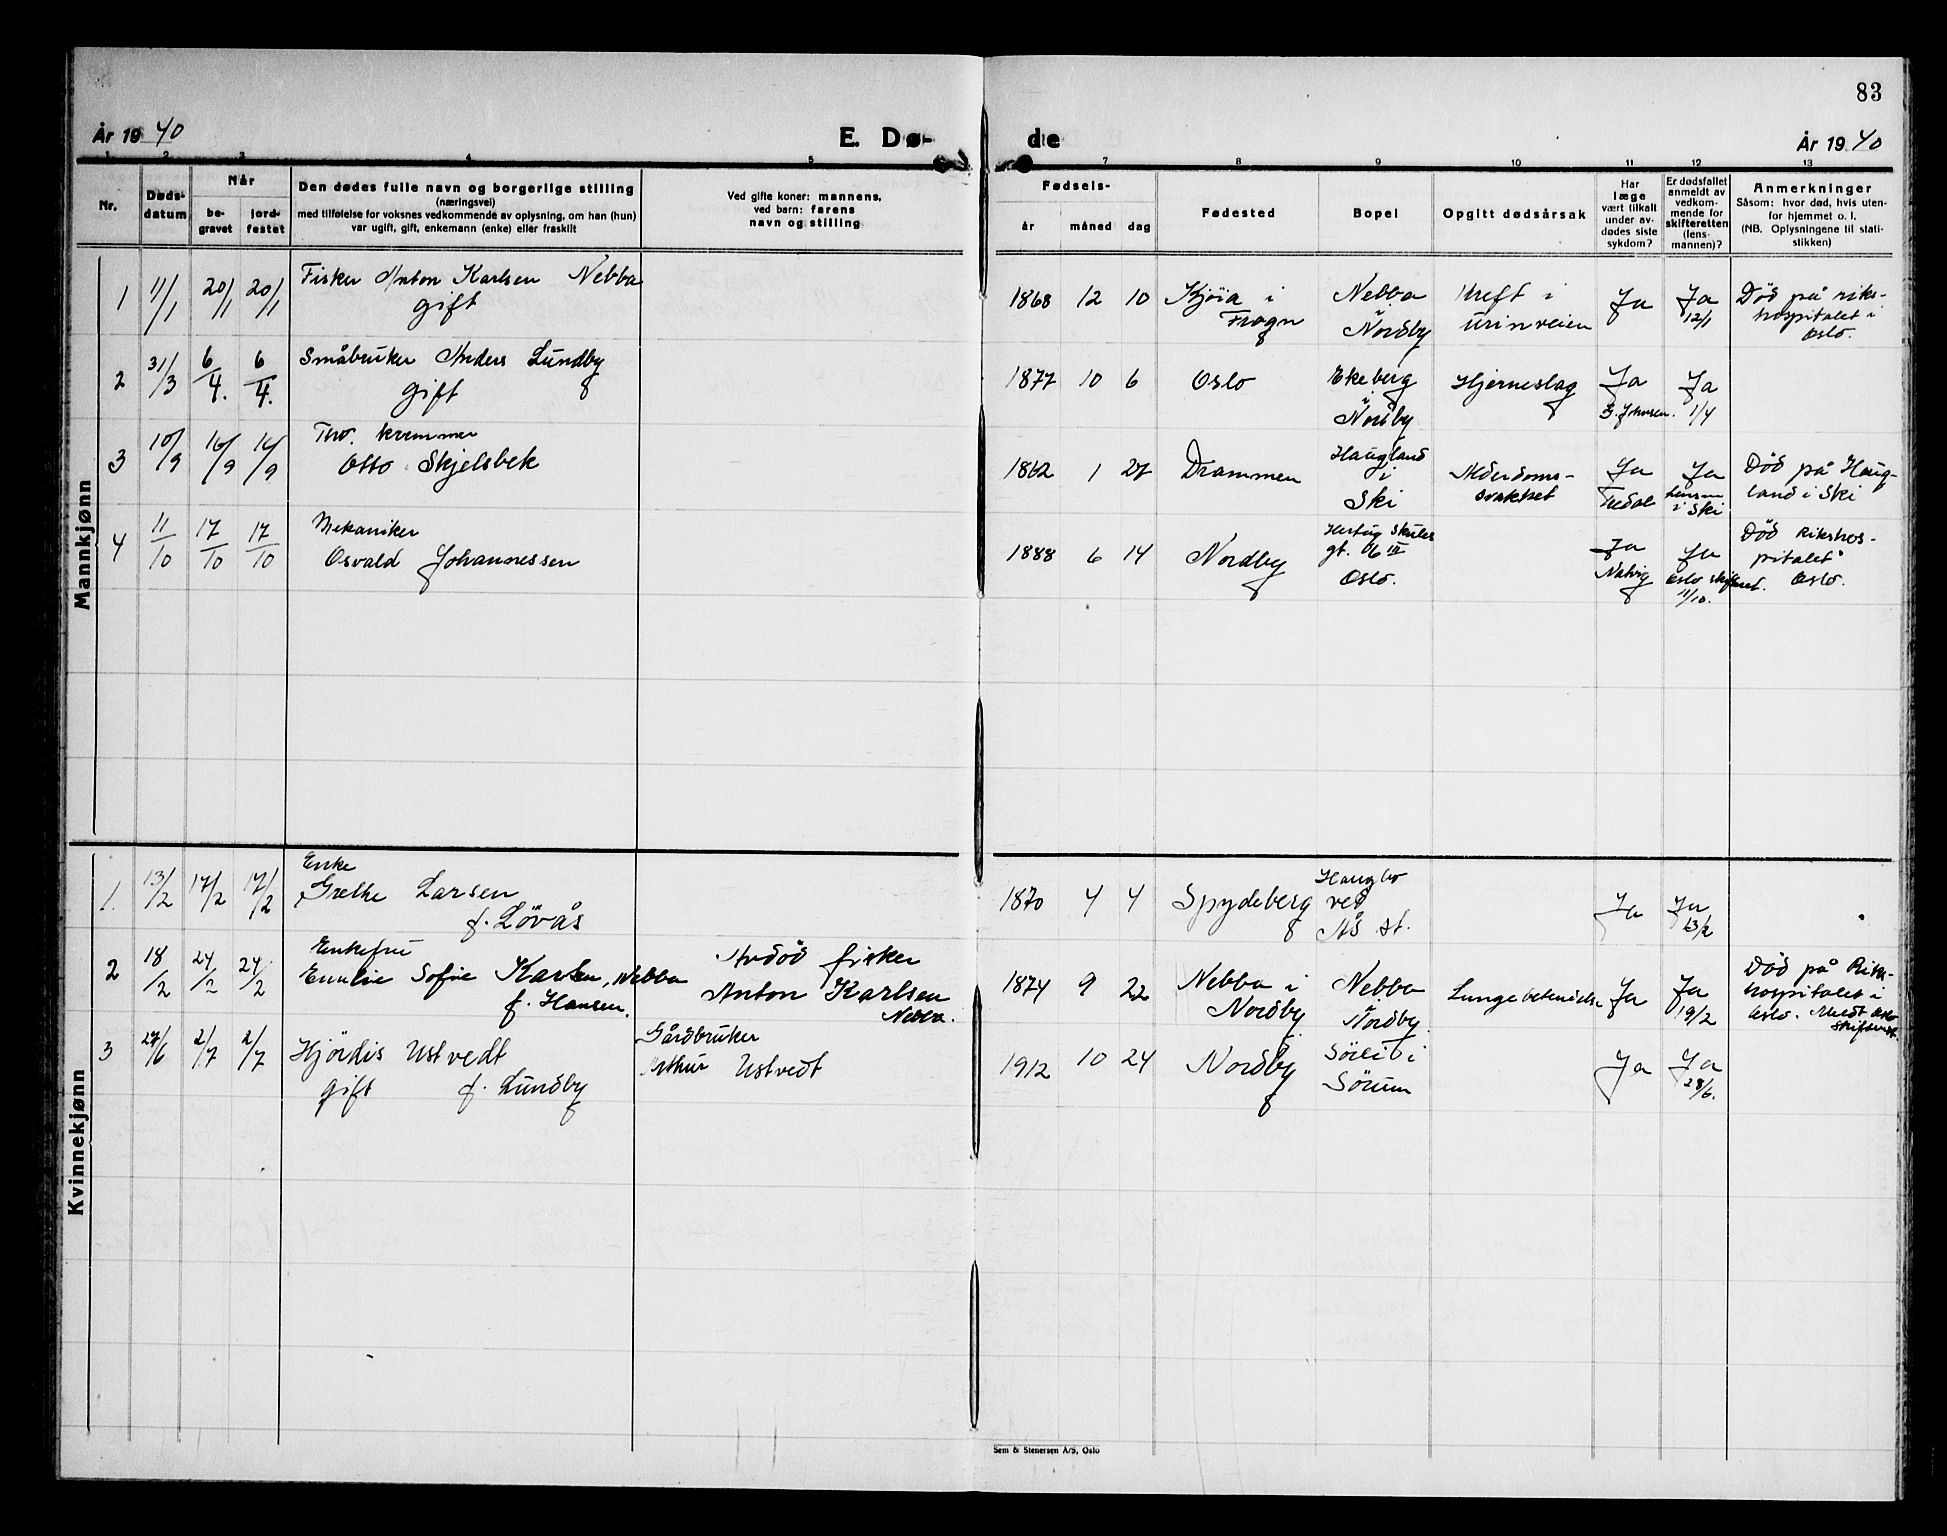 83
År 1940
E. Dø-
de
År 1940
1 2 3 4 5 7 8 9 10 11 12 13
Nr.
Døds-
datum
Når
be-
gravet
jord-
festet
Den dødes fulle navn og borgerlige stilling
(næringsvei)
med tilføielse for voksnes vedkommende av oplysning, om han (hun)
var ugift, gift, enkemann (enke) eller fraskilt
Ved gifte koner: mannens,
ved barn: farens
navn og stilling
Fødsels-
år
måned
dag
Fødested
Bopel
Opgitt dødsårsak
Har
læge
vært tilkalt
under av-
dødes siste
sykdom?
Er dødsfallet
anmeldt av
vedkom-
mende for
skifteretten
(lens-
mannen)?
Anmerkninger
Såsom: hvor død, hvis uten-
for hjemmet o. l.
(NB. Oplysningene til stati-
stikken)
Mannkjønn
1 11/1 20/1 20/1 Fisker Anton Karlsen Nebba
gift
1868 12 10 Kjöia i
Frogn
Nebba
Nordby
Kreft i
urinveien
Ja
Ja
12/1
Död på riks-
hospitalet i
Oslo.
2 31/3 6/4. 6/4. Småbruker Anders Lundby
gift
1877 10 6 Oslo
Ekeberg
Nordby
Hjerneslag
Ja
Ja
1/4
3 10/9 16/9 16/9
Otto Skjelsbek
1862 1 27 Drammen
Haugland
i
Ski
Alderdoms-
svakhet
Ja
Ja
i Ski
Död på Haug-
land i Ski
4 11/10 17/10 17/10 Mekaniker
Osvald Johannessen
1888 6 14 Nordby
Hertug Skules
gt. 16 III
Oslo.
Ja
Natvig
Ja
Oslo skifteret.
11/10.
Död Rikshos-
pitalet
Oslo.
Kvinnekjønn
1. 13/2 17/2 17/2 Enke
Grethe Larsen
f. Lövås
1870 4 4 Spydeberg
Haugbo
ved
Ås st.
Ja
Ja
13/2
2 18/2 24/2 24/2 Enkefru
Emilie Sofie Karlsen, Nebba
f. Hansen.
Avdöd fisker
Anton Karlsen
Nebba.
1874 9 22 Nebba i
Nordby
Nebba
Nordby.
Lungebetendelse
Ja
Ja
19/2
Död på Riks-
hospitalet i
Oslo. Meldt Oslo
skifterett.
3 27/6 2/7 2/7 Hjördis Ustvedt
gift f. Lundby
Gårdbruker
Arthur Ustvedt
1912 10 24 Nordby
Sörli i
Sörum
Ja
Ja
28/6.
Sem & Stenersen A/S, Oslo